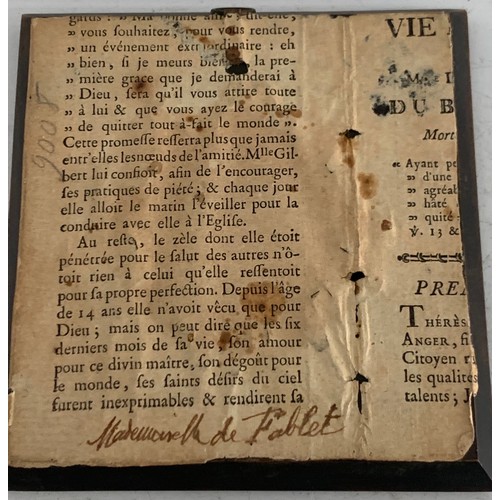 garus : " Ma bonne amie, dit-elle,
" vous souhaitez, pour vous rendre,
" un événement extraordinaire : eh
" bien, si je meurs bientôt, la pre-
" mière grace que je demanderai à
" Dieu, sera qu'il vous attire toute
" à lui & que vous ayez le courage
" de quitter tout-à-fait le monde ".
Cette promesse resserra plus que jamais
entr'elles les nœuds de l'amitié. Mlle Gil-
bert lui confioit, afin de l'encourager,
ses pratiques de piété; & chaque jour
elle alloit le matin l'éveiller pour la
conduire avec elle à l'Eglise.
Au reste, le zèle dont elle étoit
pénétrée pour le salut des autres n'ô-
toit rien à celui qu'elle ressentoit
pour sa propre perfection. Depuis l'âge
de 14 ans elle n'avoit vêcu que pour
Dieu; mais on peut dire que les six
derniers mois de sa vie, son amour
pour ce divin maître, son dégoût pour
le monde, ses saints désirs du ciel
furent inexprimables & rendirent sa
Mademoiselle de Fablet
9008
VIE
DU B
Mort
« Ayant pe
" d'une
" agréab
" hâté
" quité
℣. 13 &
PRE
THÉRÈS
ANGER, fi
Citoyen r
les qualités
talents; J